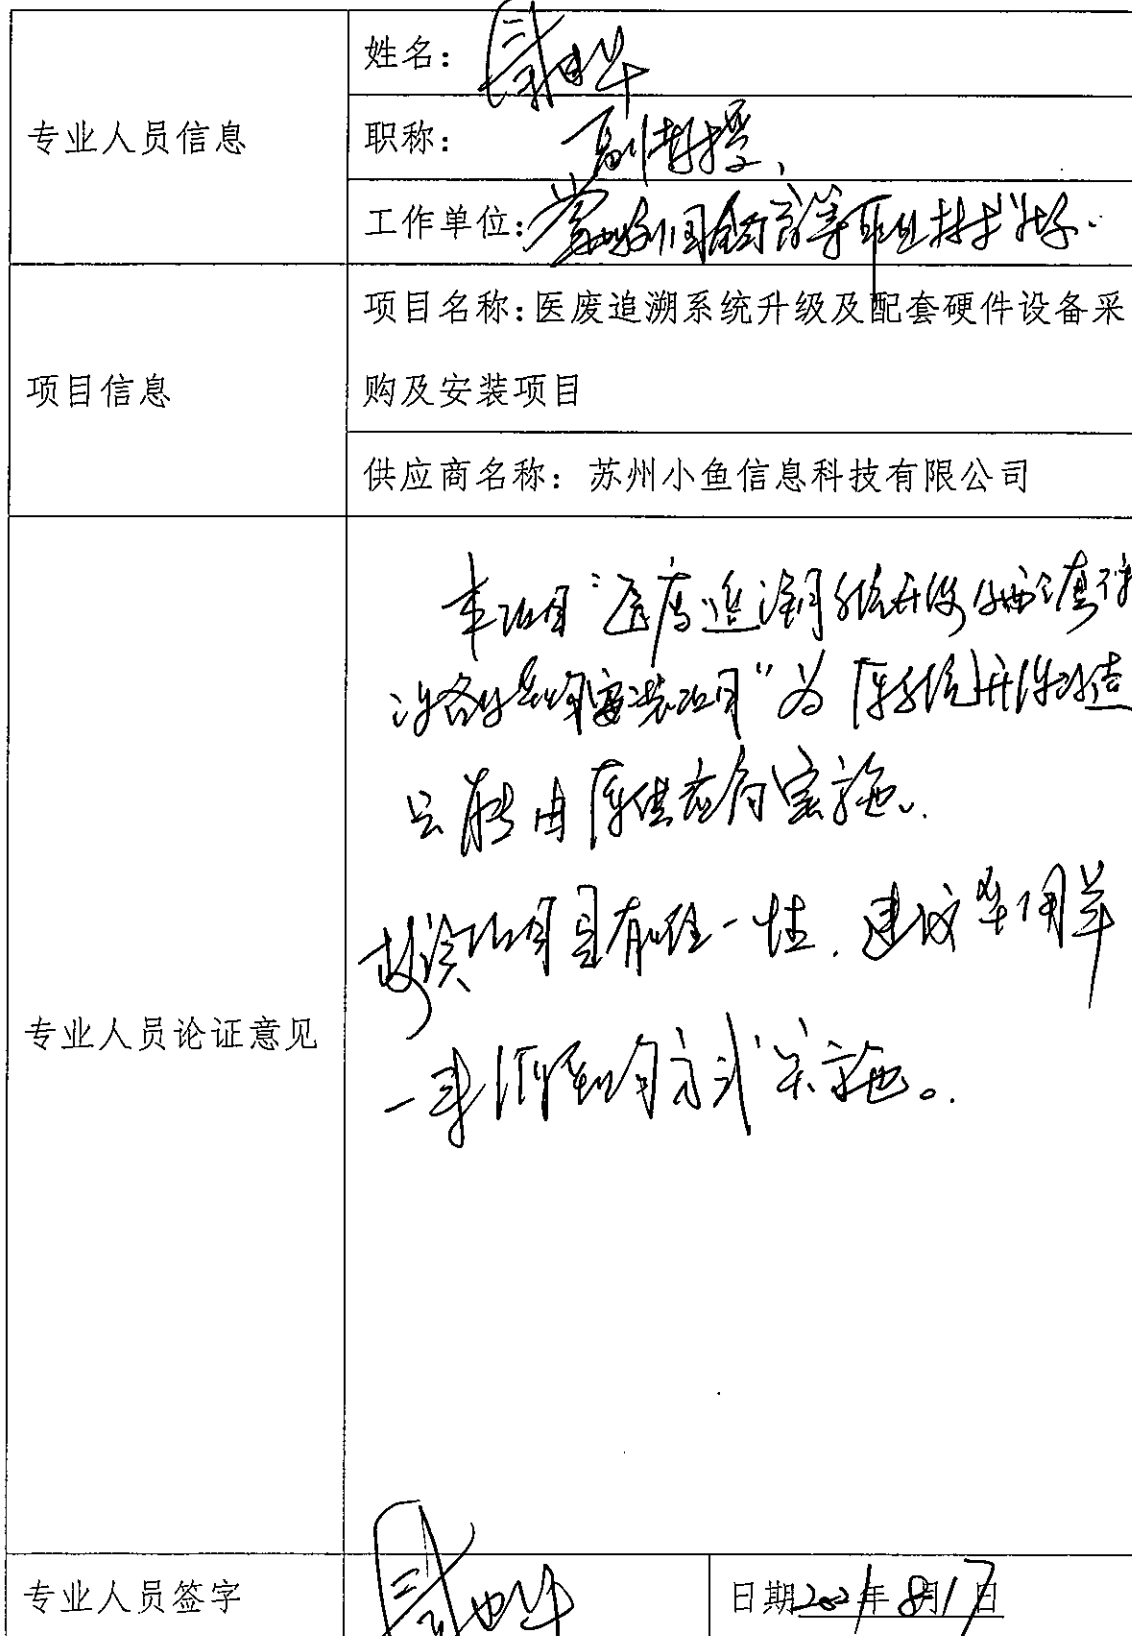 专业人员信息
姓名：
职称： 副教授
工作单位： 高等职业技术
项目信息
项目名称：医废追溯系统升级及配套硬件设备采
购及安装项目
供应商名称：苏州小鱼信息科技有限公司
专业人员论证意见
本项目“医废追溯系统升级及配套硬件
设备采购安装项目”为原系统升级改造
只能由原供应商实施。
故该项目具有唯一性，建议采用单
一来源采购方式实施。
专业人员签字
日期2021年8月17日